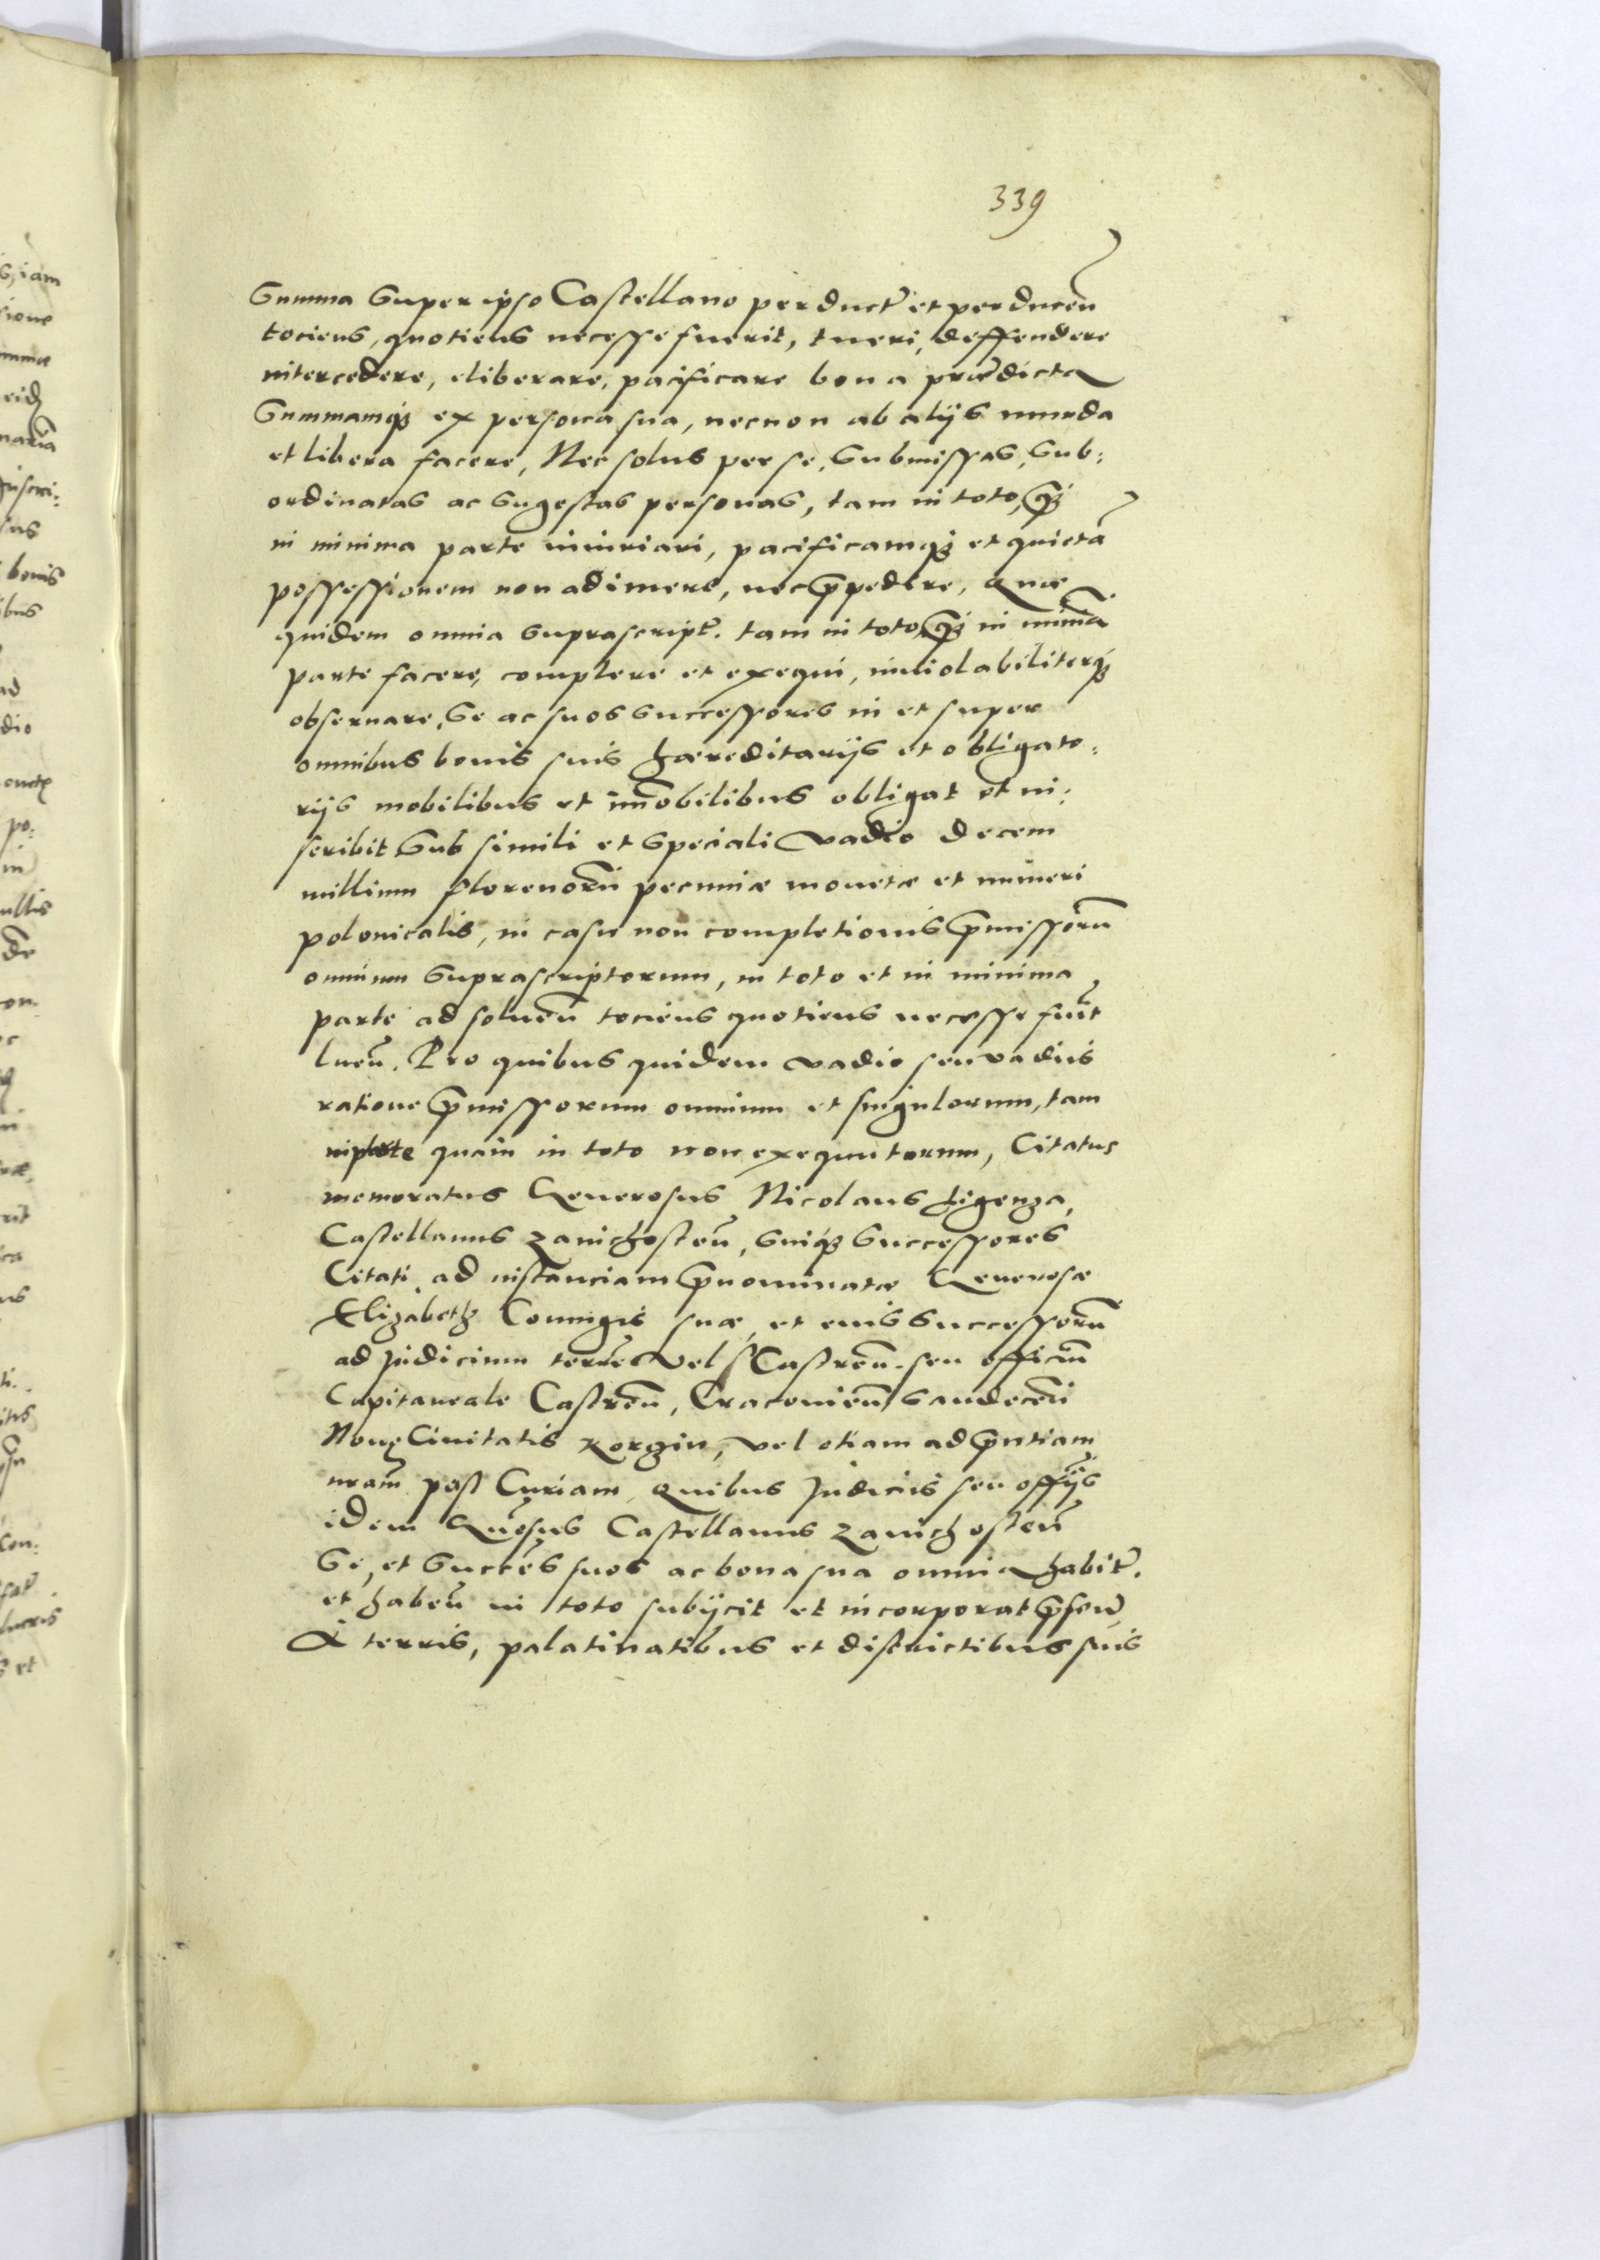 339
Summa super ipso Castellano perduct. et perducen̄
tociens, quotiens necesse fuerit, tueri, deffendere
intercedere, eliberare, pacificare bona prædicta
Summamq₃ ex persona sua, necnon ab alijs munda
et libera facere, Nec solus per se, submissas, sub:
ordinatas ac sugestas personas, tam in toto, q̄₃
in minima parte iniuriari, pacificamq₃ et quietā
possessionem non adimere, nec p̄pedire, Quæ
quidem omnia suprascript. tam in toto q̄₃ in minīa
parte facere, complere et exequi, inuiolabiliterq₃
obseruare, Se ac suos successores in et super
omnibus bonis suis hæreditarijs et obligato:
rijs mobilibus et im̄obilibus obligat et in:
scribit Sub simili et speciali vadio decem
millium florenorū pecuniæ monetæ et numeri
polonicalis, in casu non completionis p̄missorū
omnium suprascriptorum, in toto et in minima
parte ad soluen̄ tociens quotiens necesse fuīt
luen̄. Pro quibus quidem vadio seu vadiis
ratione p̄missorum omnium et singulorum, tam
in parte quam in toto non exequutorum, Citatus
memoratus Generosus Nicolaus Ligenza,
Castellanus Zawichosten̄, suiq₃ Successores
Citati, ad instanciam p̄nominatæ Generosæ
Elizabeth Coniugis suæ, et eius Successorū
ad Judicium terres̄ vel Castren̄. seu officiū
Capitaneale Castren̄, Cracouien̄ Sandecen̄
Nouę Ciuitatis Korzin, vel etiam ad p̄ntiam
nr̄am post Curiam, Quibus Judiciis seu offījs
idem Gn̄osus Castellanus Zawichosten̄
Se, et Succes̄ suos ac bona sua omnia habit.
et haben̄ in toto subijcit et incorporat
A terris, palatinatibus et districtibus suis